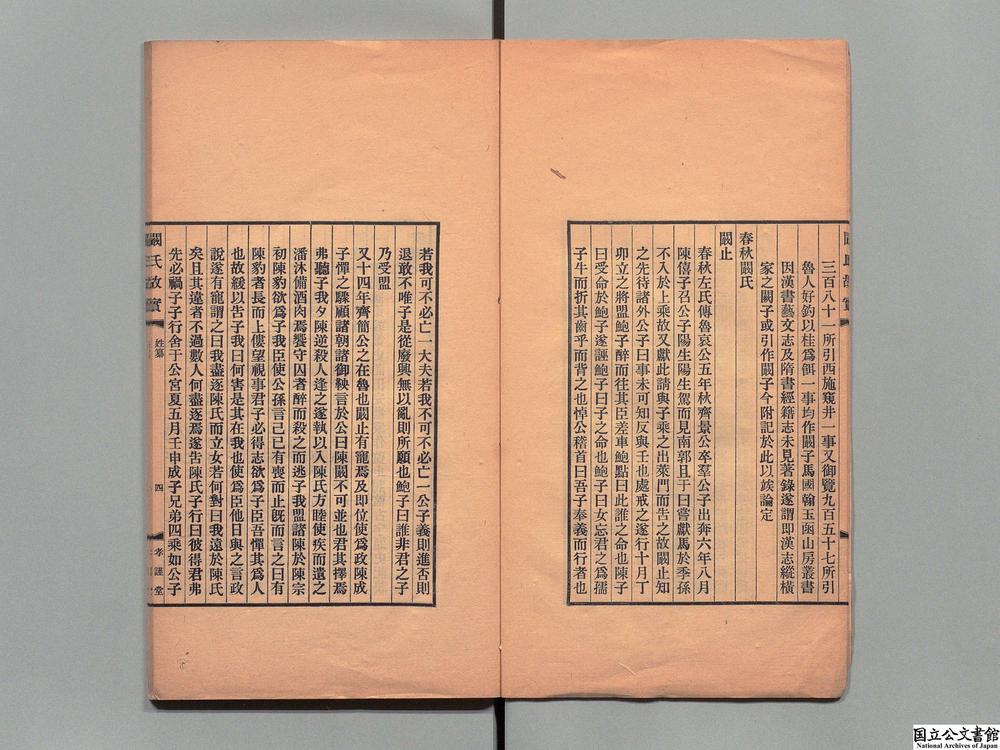 三百八十一所引西施窺井一事又御覽九百五十七所引
魯人好釣以桂爲餌一事均作闞子馬國翰玉函山房叢書
因漢書藝文志及隋書經籍志未見著錄遂謂即漢志縱橫
家之闕子或引作闞子今附記於此以竢論定
春秋闞氏
闞止
春秋左氏傳魯哀公五年秋齊景公卒羣公子出奔六年八月
陳僖子召公子陽生陽生駕而見南郭且于曰嘗獻馬於季孫
不入於上乘故又獻此請與子乘之出萊門而告之故闞止知
之先待諸外公子曰事未可知反與壬也處戒之遂行十月丁
卯立之將盟鮑子醉而往其臣差車鮑點曰此誰之命也陳子
曰受命於鮑子遂誣鮑子曰子之命也鮑子曰女忘君之爲孺
子牛而折其齒乎而背之也悼公稽首曰吾子奉義而行者也
若我可不必亡一大夫若我不可不必亡一公子義則進否則
退敢不唯子是從廢興無以亂則所願也鮑子曰誰非君之子
乃受盟
又十四年齊簡公之在魯也闞止有寵焉及即位使爲政陳成
子憚之驟顧諸朝諸御鞅言於公曰陳闞不可並也君其擇焉
弗聽子我夕陳逆殺人逢之遂執以入陳氏方睦使疾而遺之
潘沐備酒肉焉饗守囚者醉而殺之而逃子我盟諸陳於陳宗
初陳豹欲爲子我臣使公孫言己已有喪而止旣而言之曰有
陳豹者長而上僂望視事君子必得志欲爲子臣吾憚其爲人
也故緩以告子我曰何害是其在我也使爲臣他日與之言政
說遂有寵謂之曰我盡逐陳氏而立女若何對曰我遠於陳氏
矣且其違者不過數人何盡逐焉遂告陳氏子行曰彼得君弗
先必禍子子行舍于公宮夏五月壬申成子兄弟四乘如公子
闞氏故實
姓纂
四
孝謹堂
国立公文書館
National Archives of Japan